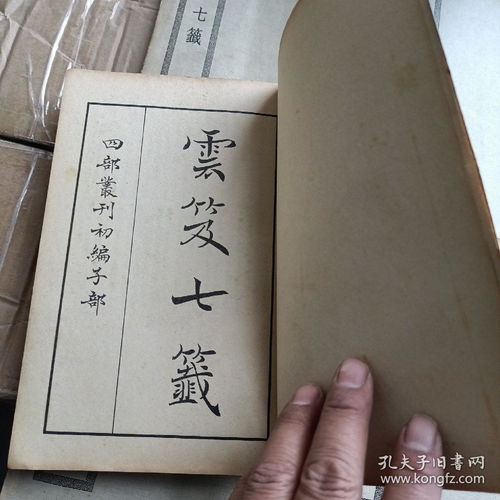 七籤
雲笈七籤
四部叢刊初編子部
孔夫子旧书网
www.kongfz.com